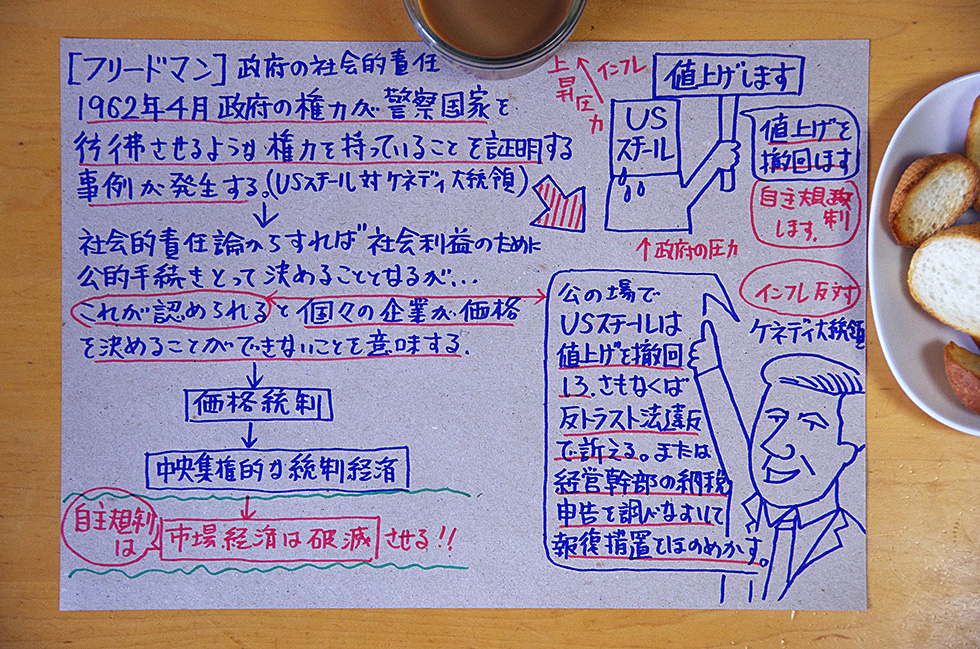 [フリードマン] 政府の社会的責任
1962年4月 政府の権力が警察国家を
彷彿させるような権力を持っていることを証明する
事例が発生する。(USスチール対ケネディ大統領)
社会的責任論からすれば"社会利益のために
公的手続きとって決めることとなるが...
これが認められると個々の企業が価格
を決めることができないことを意味する.
価格統制
中央集権的な統制経済
自主規制
は
市場経済は破滅させる!!
上昇圧力
インフレ
値上げします
US
スチール
値上げを
撤回します
自主規制
します.
↑政府の圧力
インフレ反対
ケネディ大統領
公の場で
USスチールは
値上げを撤回
しろ.さもなくば
反トラスト法違反
で訴える。または
経営幹部の納税
申告を調べなおして
報復措置でほのめかす。